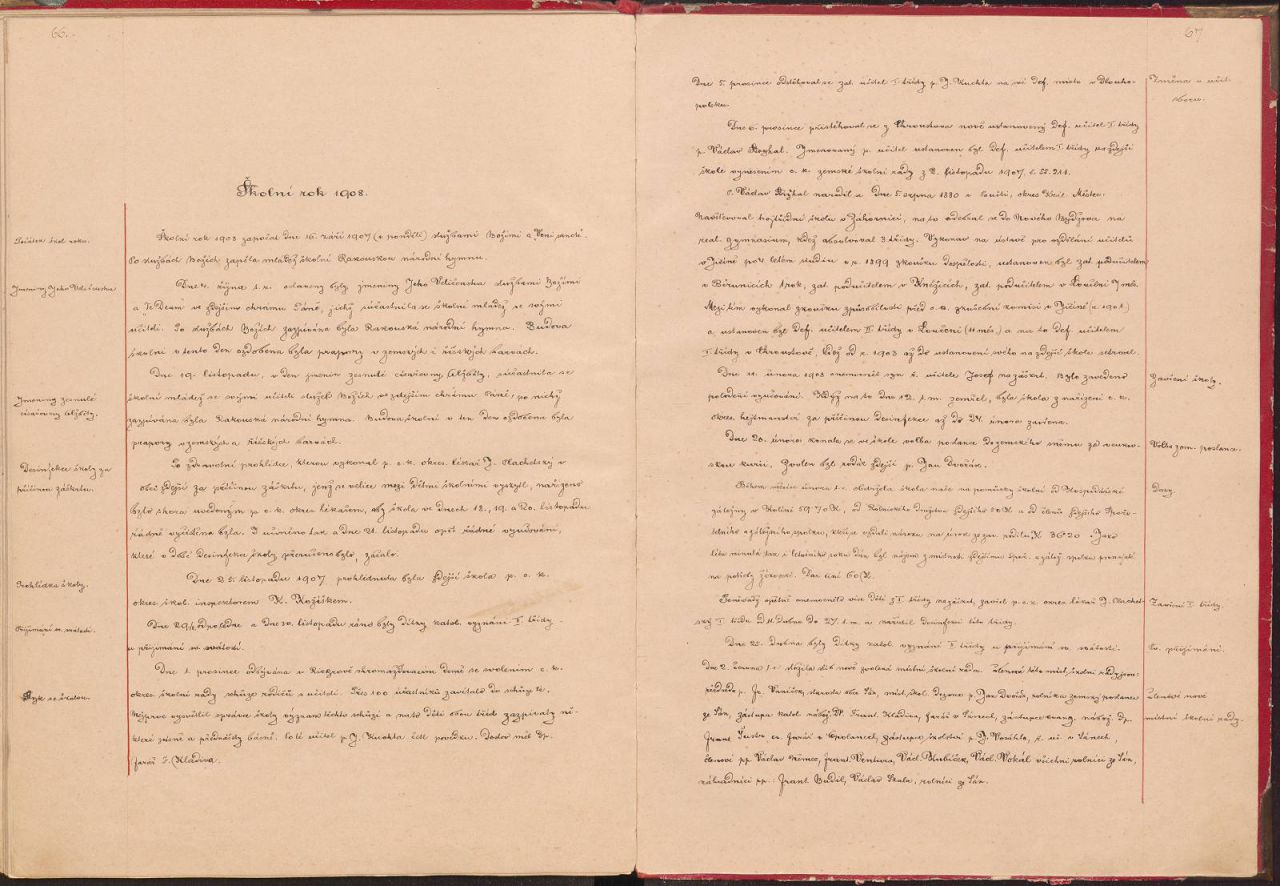 66.
Školní rok 1908.
Počátek škol. roku.
Školní rok 1908 započat dne 16. září 1907 (v pondělí) službami Božími a "Veni sancte".
Po službách Božích zapěla mládež školní Rakouskou národní hymnu.
Jmeniny Jeho Veličenstva
Dne 4. října t. r. oslaveny byly jmeniny Jeho Veličenstva službami Božími
a "Te Deum" ve zdejším chrámu Páně, jichž súčastnila se školní mládež se svými
učiteli. Po službách Božích zazpívána byla Rakouská národní hymna. Budova
školní v tento den ozdobena byla prapory v zemských i říšských barvách.
Jmeniny zesnulé
císařovny Alžběty.
Dne 19. listopadu, v den jmenin zesnulé císařovny Alžběty, súčastnila se
školní mládež se svými učiteli služeb Božích ve zdejším chrámu Páně, po nichž
zazpívána byla Rakouská národní hymna. Budova školní v ten den ozdobena byla
prapory v zemských a říšských barvách.
Desinfekce školy za
příčinou záškrtu.
Po zdravotní prohlídce, kterou vykonal p. c. k. okres. lékař J. Machotský v
obci zdejší za příčinou záškrtu, jenž se velice mezi dětmi školními vyskytl, nařízeno
bylo shora uvedeným p. c. k. okres. lékařem, aby škola ve dnech 18., 19. a 20. listopadu
řádně vyčištěna byla. I učiněno tak a dne 21. listopadu opět řádné vyučování,
které v době desinfekce školy přerušeno bylo, začalo.
Prohlídka školy.
Dne 25. listopadu 1907 prohlédnuta byla zdejší škola p. c. k.
okres. škol. inspektorem K. Kožíškem.
Přijímání sv. svátostí.
Dne 29/11 odpoledne a dne 30. listopadu ráno byly dítky katol. vyznání II. třídy
u přijímání sv. svátostí.
Styk se školou.
Dne 1. prosince odbývána v Riegrově shromažďovacím domě se svolením c. k.
okres. školní rady schůze rodičů s učiteli. Přes 100 účastníků zavítalo do schůze té.
Nejprve vysvětlil správce školy význam těchto schůzí a na to děti obou tříd zazpívaly ně-
které písně a přednášely básně. Poté učitel p. J. Kuchta četl povídku. Doslov měl dp.
farář F. Kladiva.
67
Dne 5. prosince odstěhoval se zat. učitel I. třídy p. J. Kuchta na své def. místo v Dlouho-
polsku.
Změna v učit.
sboru.
Dne 6. prosince přistěhoval se z Chroustova nově ustanovený def. učitel I. třídy
p. Václav Ryzhal. Jmenovaný p. učitel ustanoven byl def. učitelem I. třídy na zdejší
škole vynesením c. k. zemské školní rady z 2. listopadu 1907, č.
P. Václav Ryzhal narodil se dne 5. srpna 1880 v okres Král. Městec.
Navštěvoval trojtřídní školu v Záhornici, na to odebral se do Nového Bydžova na
real. gymnasium, kdež absolvoval 3 třídy. Vykonav na ústavě pro vzdělání učitelů
v Jičíně po 4 letém studiu v r. 1899 zkoušku dospělosti, ustanoven byl zat. podučitelem
v Běrunicích 1 rok, zat. podučitelem v Kněžicích, zat. podučitelem v Loučeni 7 měs.
Mezitím vykonal zkoušku způsobilosti před c. k. zkušební komisí v Jičíně (r. 1901)
a ustanoven byl def. učitelem II. třídy v Loučeni (11 měs.) a na to def. učitelem
I. třídy v Chroustově, kdež od r. 1903 až do ustanovení svého na zdejší škole setrval.
Zavření školy.
Dne 11. února 1908 onemocněl syn ř. učitele Josef na záškrt. Bylo zavedeno
polodenní vyučování. Když na to dne 12. t. m. zemřel, byla škola z nařízení c. k.
okres. hejtmanství za příčinou desinfekce až do 24. února zavřena.
Volba zem. poslance.
Dne 26. února konala se ve škole volba poslance do zemského sněmu za venkov-
skou kurii. Zvolen byl rodák zdejší p. Jan Dvořák.
Dary.
Během měsíce února t. r. obdržela škola naše na pomůcky školní od Hospodářské
záložny v Kolíně 59.70 K, od Rolnického Družstva zdejšího 20 K a od členů zdejšího Spoři-
telního a záloženského spolku, kteříž vzdali nároku na úrok ze svých podílů K 36.20. Jako
léta minulá tak i letošního roku dán byl nájem z místnosti zdejšímu spoř. a zálož. spolku pronajaté
na potřeby žákovské. Dar činí 60 K.
Zavření I. třídy.
Poněvadž opětně onemocnělo více dětí z I. třídy na záškrt, zavřel p. c. k. okres. lékař J. Machot-
ský I. třídu od 11. dubna do 27. t. m. a nařídil desinfekci této třídy.
Sv. přijímání.
Dne 25. dubna byly dítky katol. vyznání II. třídy u přijímání sv. svátostí.
Členové nové
místní školní rady.
Dne 2. června t. r. složila slib nově zvolená místní školní rada. Členové této míst. školní rady jsou:
předseda p. Jos. Vaníček, starosta obce Sán, míst. škol. dozorce p. Jan Dvořák, rolník a zemský poslanec
ze Sán, zástupce katol. nábož. Dp. Frant. Kladiva, farář v Sánech, zástupce evang. nábož. dp.
Frant. Šustr ev. farář v Opolanech, zástupce školství p. J. ř. uč. v Sánech,
členové pp. Václav Němec, Frant. Ventura, Václ. Hlubíček, Václ. Vokál všichni rolníci ze Sán,
náhradníci pp.: Frant. Budil, Václav Škula, rolníci ze Sán.